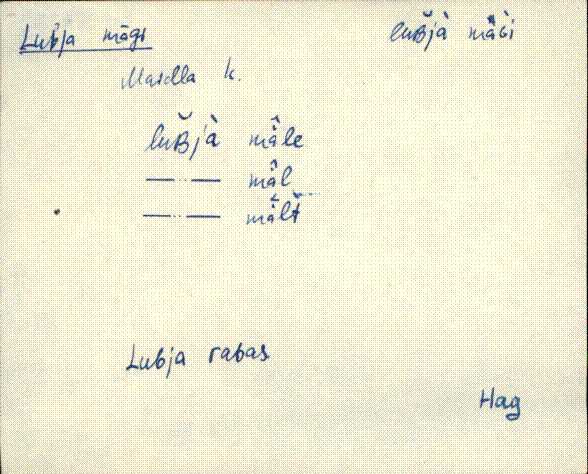 Lubja mägi luB̆jà mä̆Gì
Masdla k.
luB̆jà mä̂le
—··— mä̂l
—··— mä̂lt
Lubja rabas
Hag